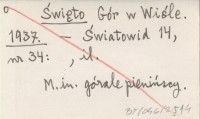 Święto Gór w Wiśle.
1937. – Światowid 14,
nr 34: , il.
M. in. górale pienińscy.